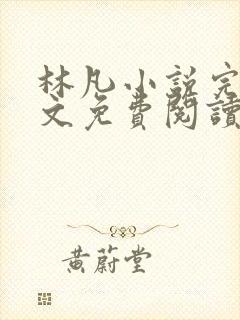 林凡小說完
文免費閱讀
黃蔚堂